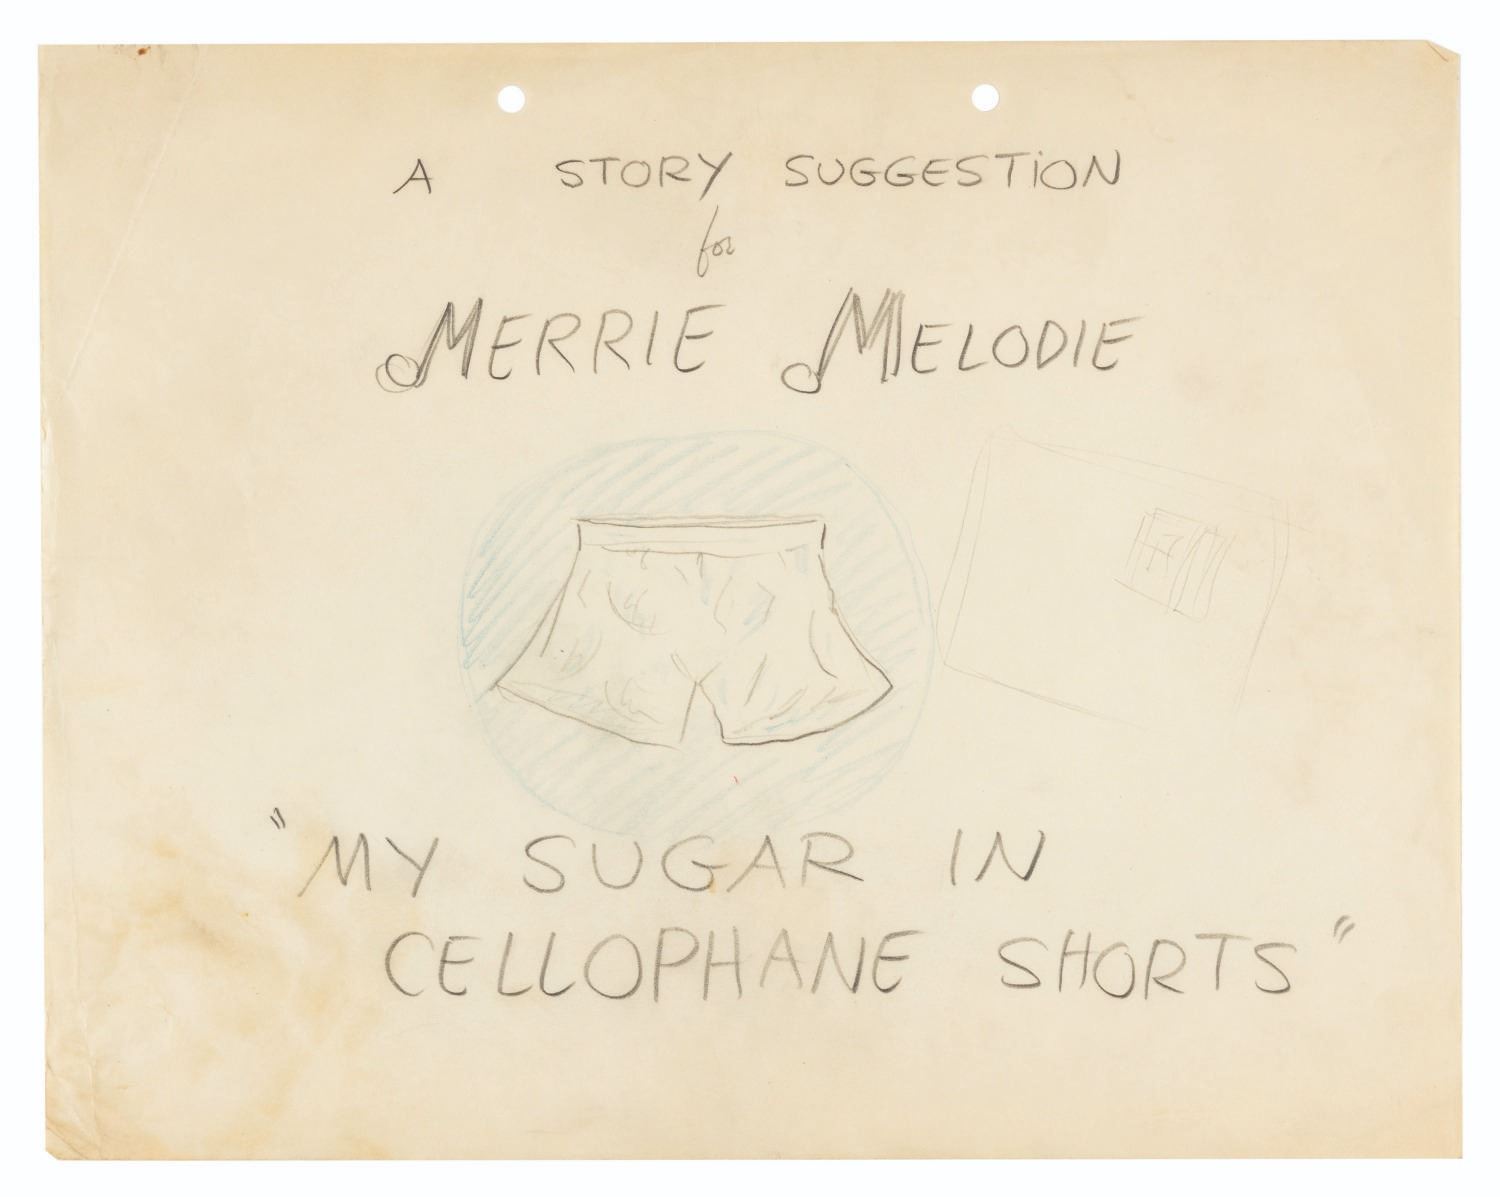 A STORY SUGGESTION
for
MERRIE MELODIE
"MY SUGAR IN
CELLOPHANE SHORTS"